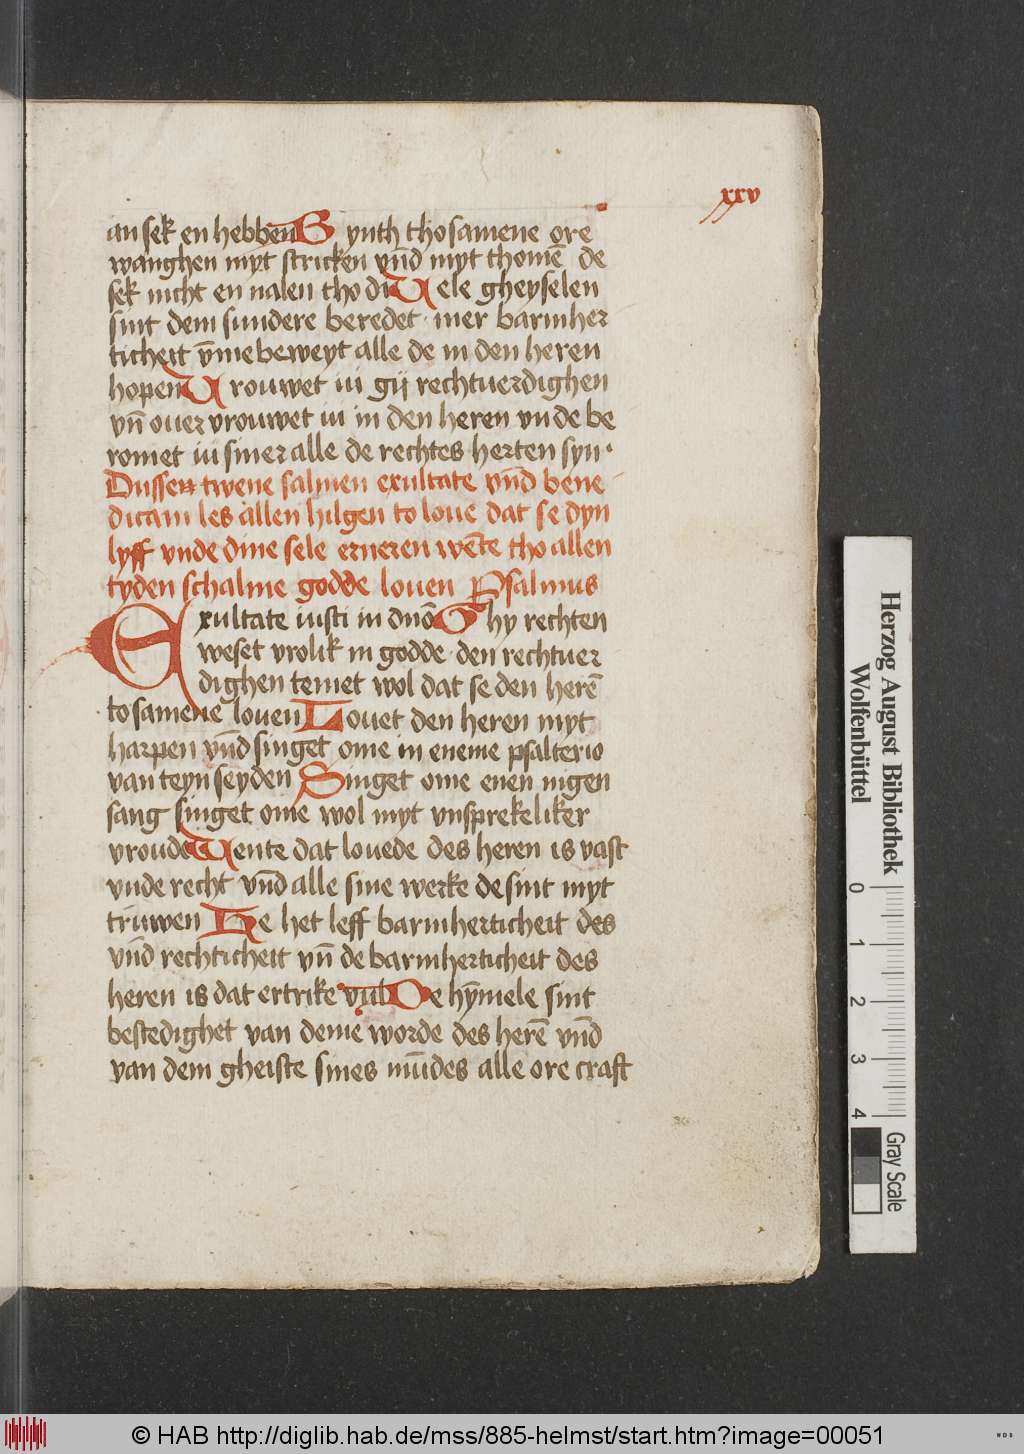 xxv
an sek en hebben Bynth tho samene ore
wanghen myt stricken vn̄d myt thomē de
sek nicht en nalen tho di Uele gheyselen
sint dem sundere beredet · mer barmher
ticheit v̄me beweyt alle de in den heren
hopen Vrouwet iu gij rechtuerdighen
vn̄ ouer vrouwet iu in den heren vnde be
romet iu siner alle de rechtes herten syn ·
Dussen twene salmen exultate vn̄d bene
dicam les allen hilgen to loue dat se dyn
lyff vnde dine sele erneren wēte tho allen
tyden schalme godde louen Psalmus
Exultate iusti in dn̄o Ghy rechten
weset vrolik in godde · den rechtuer
dighen temet wol dat se den herē
to samene louen Louet den heren myt
harpen vn̄d singet ome in eneme psalterio
van teyn seyden Singet ome enen nigen
sang singet ome wol myt vnsprekeliker
vroude Wente dat louede des heren is vast
vnde recht vn̄d alle sine werke de sint myt
truwen He het leff barmherticheit des
vn̄d rechticheit vn̄ de barmherticheit des
heren is dat ertrike vul De hȳmele sint
bestedighet van deme worde des herē vn̄d
van dem gheiste sines mūdes alle ore craft
Herzog August Bibliothek
Wolfenbüttel
0 1 2 3 4
Gray Scale
© HAB http://diglib.hab.de/mss/885-helmst/start.htm?image=00051